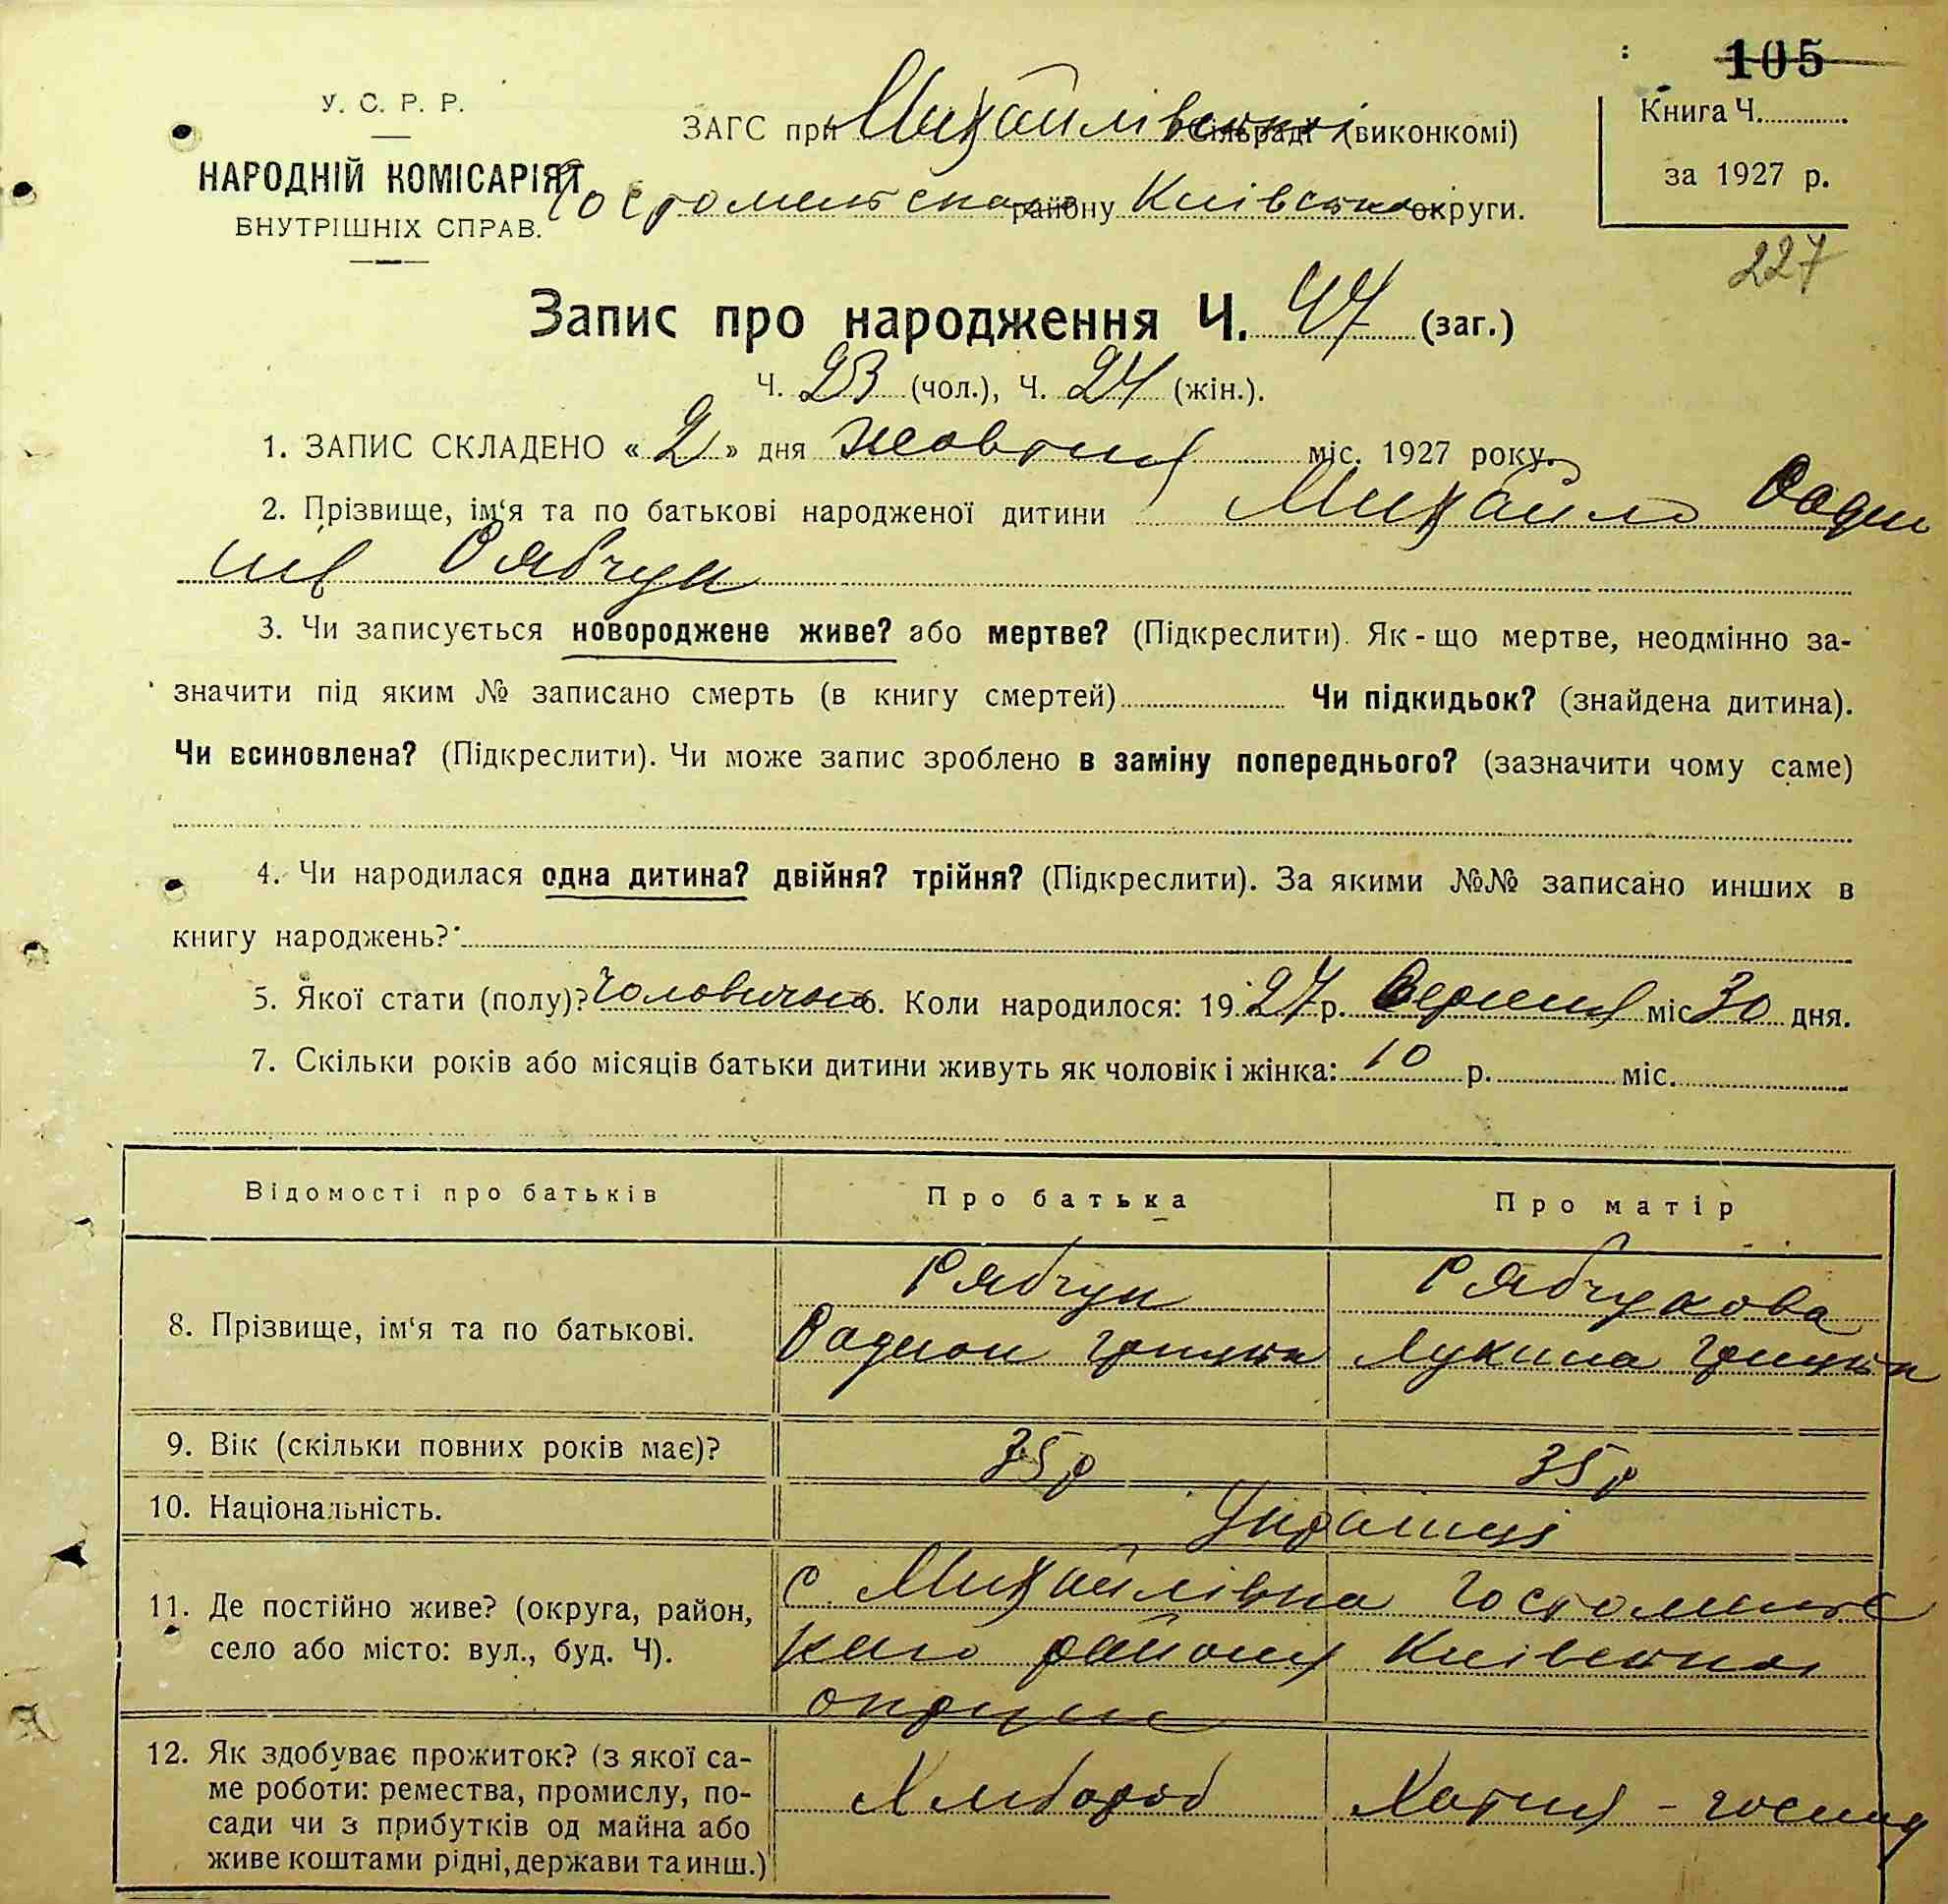 105
У. С. Р. Р.
НАРОДНІЙ КОМІСАРІЯТ
ВНУТРІШНІХ СПРАВ.
ЗАГС при Михайлівській сільраді (виконкомі)
Гостомельського району Київської округи.
Книга Ч.
за 1927 р.
227
Запис про народження Ч. 47 (заг.)
Ч. 23 (чол.), Ч. 24 (жін.).
1. ЗАПИС СКЛАДЕНО « 2 » дня жовтня міс. 1927 року.
2. Прізвище, ім‘я та по батькові народженої дитини Михайло Ради
нів Рябчук
3. Чи записується новороджене живе? або мертве? (Підкреслити). Як - що мертве, неодмінно за-
значити під яким № записано смерть (в книгу смертей) Чи підкидьок? (знайдена дитина).
Чи всиновлена? (Підкреслити). Чи може запис зроблено в заміну попереднього? (зазначити чому саме)
4. Чи народилася одна дитина? двійня? трійня? (Підкреслити). За якими №№ записано инших в
книгу народжень?
5. Якої стати (полу)? Чоловичого 6. Коли народилося: 1927 р. Вересня міс 30 дня.
7. Скільки років або місяців батьки дитини живуть як чоловік і жінка: 10 р. міс.
Відомості про батьків Про батька Про матір
8. Прізвище, ім‘я та по батькові. Рябчук Рябчукова
Радион Грицьків Лукина Грицьків
9. Вік (скільки повних років має)? 35 р 35 р
10. Національність. Українці
11. Де постійно живе? (округа, район, с. Михайлівка Гостомельс
село або місто: вул., буд. Ч). кого району Київської
округи
12. Як здобуває прожиток? (з якої са-
ме роботи: ремества, промислу, по- Хлибороб Хатня - господ
сади чи з прибутків од майна або
живе коштами рідні, держави та инш.)